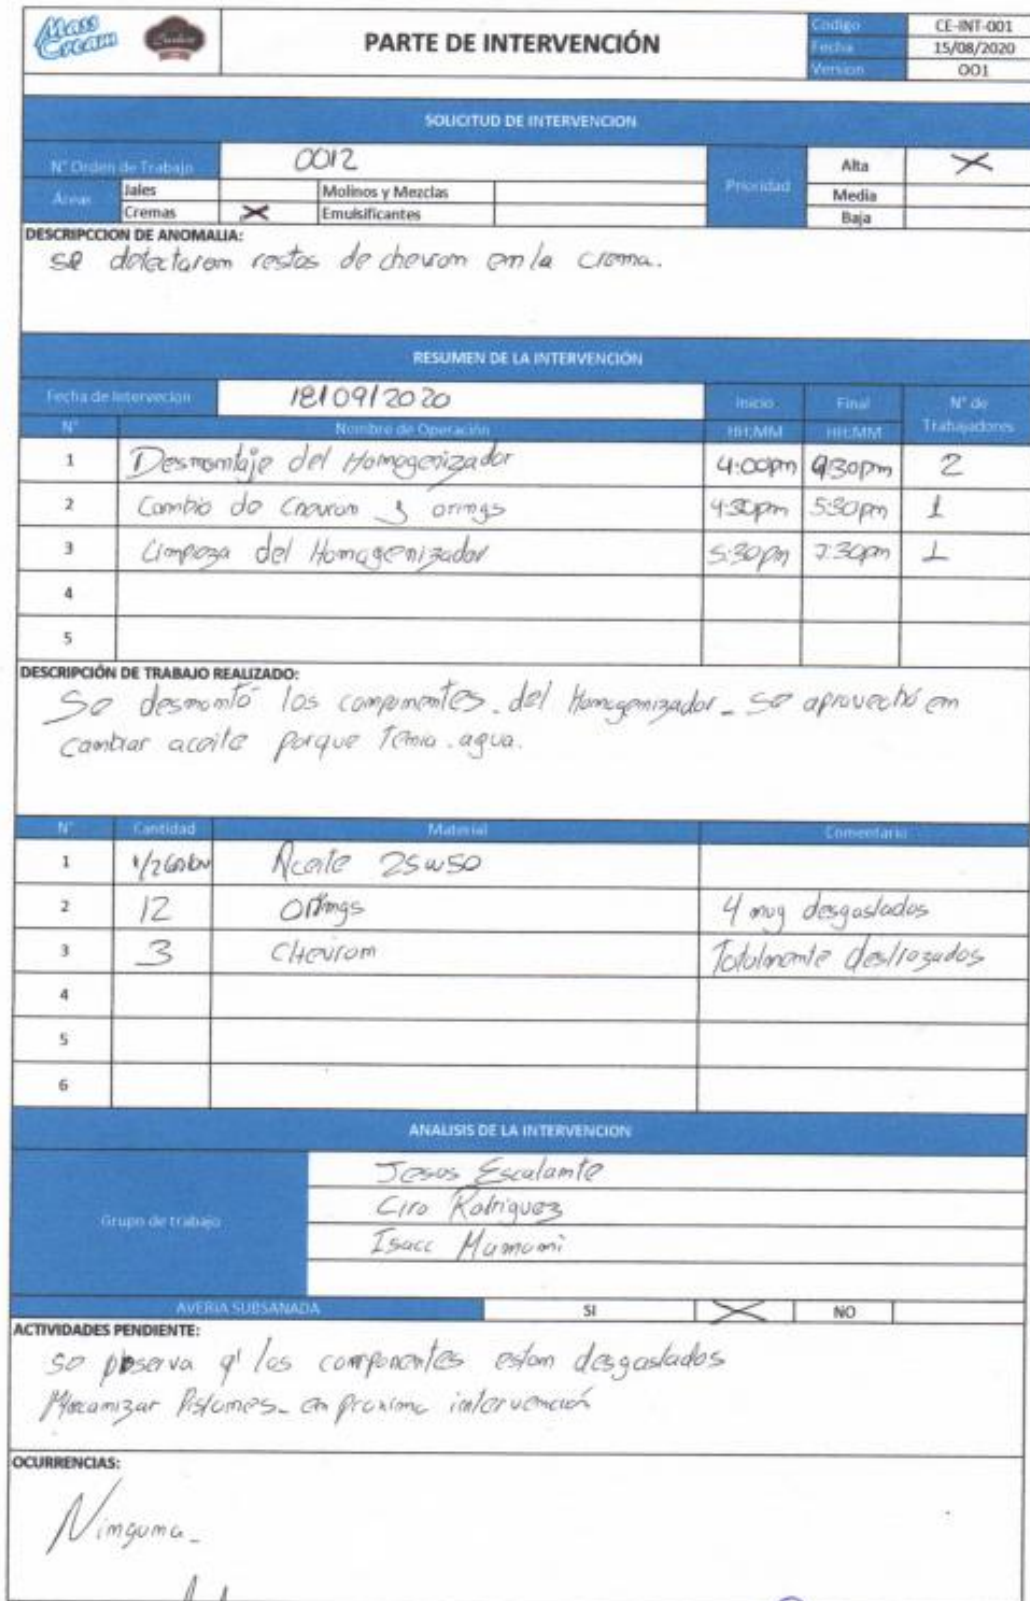 Mass Cream
PARTE DE INTERVENCIÓN
Codigo CE-INT-001
Fecha 15/08/2020
Version OO1
SOLICITUD DE INTERVENCION
N° Orden de Trabajo 0012
Prioridad Alta X
Áreas Jales Molinos y Mezclas Media
Cremas X Emulsificantes Baja
DESCRIPCCION DE ANOMALIA:
se detectaron restos de chevron en la crema.
RESUMEN DE LA INTERVENCIÓN
Fecha de Intervecion 18/09/2020 Inicio Final N° de Trabajadores
N° Nombre de Operación HH:MM HH:MM
1 Desmontaje del Homogenizador 4:00pm 9:30pm 2
2 Cambio de Chevron y orings 4:30pm 5:30pm 1
3 Limpeza del Homogenizador 5:30pm 7:30pm 1
4
5
DESCRIPCIÓN DE TRABAJO REALIZADO:
Se desmontó los componentes del Homogenizador_ se aprovechó en
cambiar aceite porque tenia agua.
N° Cantidad Material Comentario
1 1/2 Galon Aceite 25w50
2 12 Orings 4 muy desgastados
3 3 Chevron Totalmente destrozados
4
5
6
ANALISIS DE LA INTERVENCION
Grupo de trabajo
Jesus Escalante
Ciro Rodriguez
Isacc Mamani
AVERIA SUBSANADA SI X NO
ACTIVIDADES PENDIENTE:
se observa q' los componentes estan desgastados
Mecanizar Pistones_ en proxima intervención
OCURRENCIAS:
Ninguna_